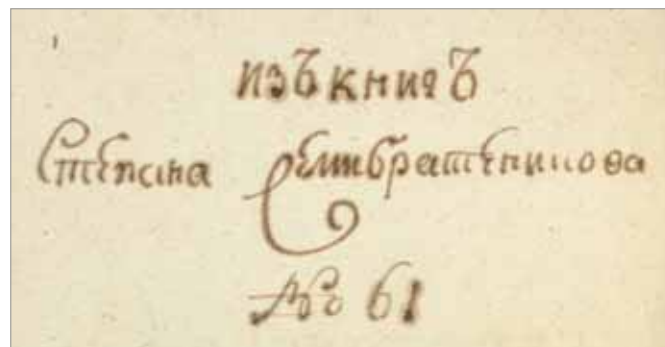 изъ книгъ
Степана Семибратенникова
№ 61